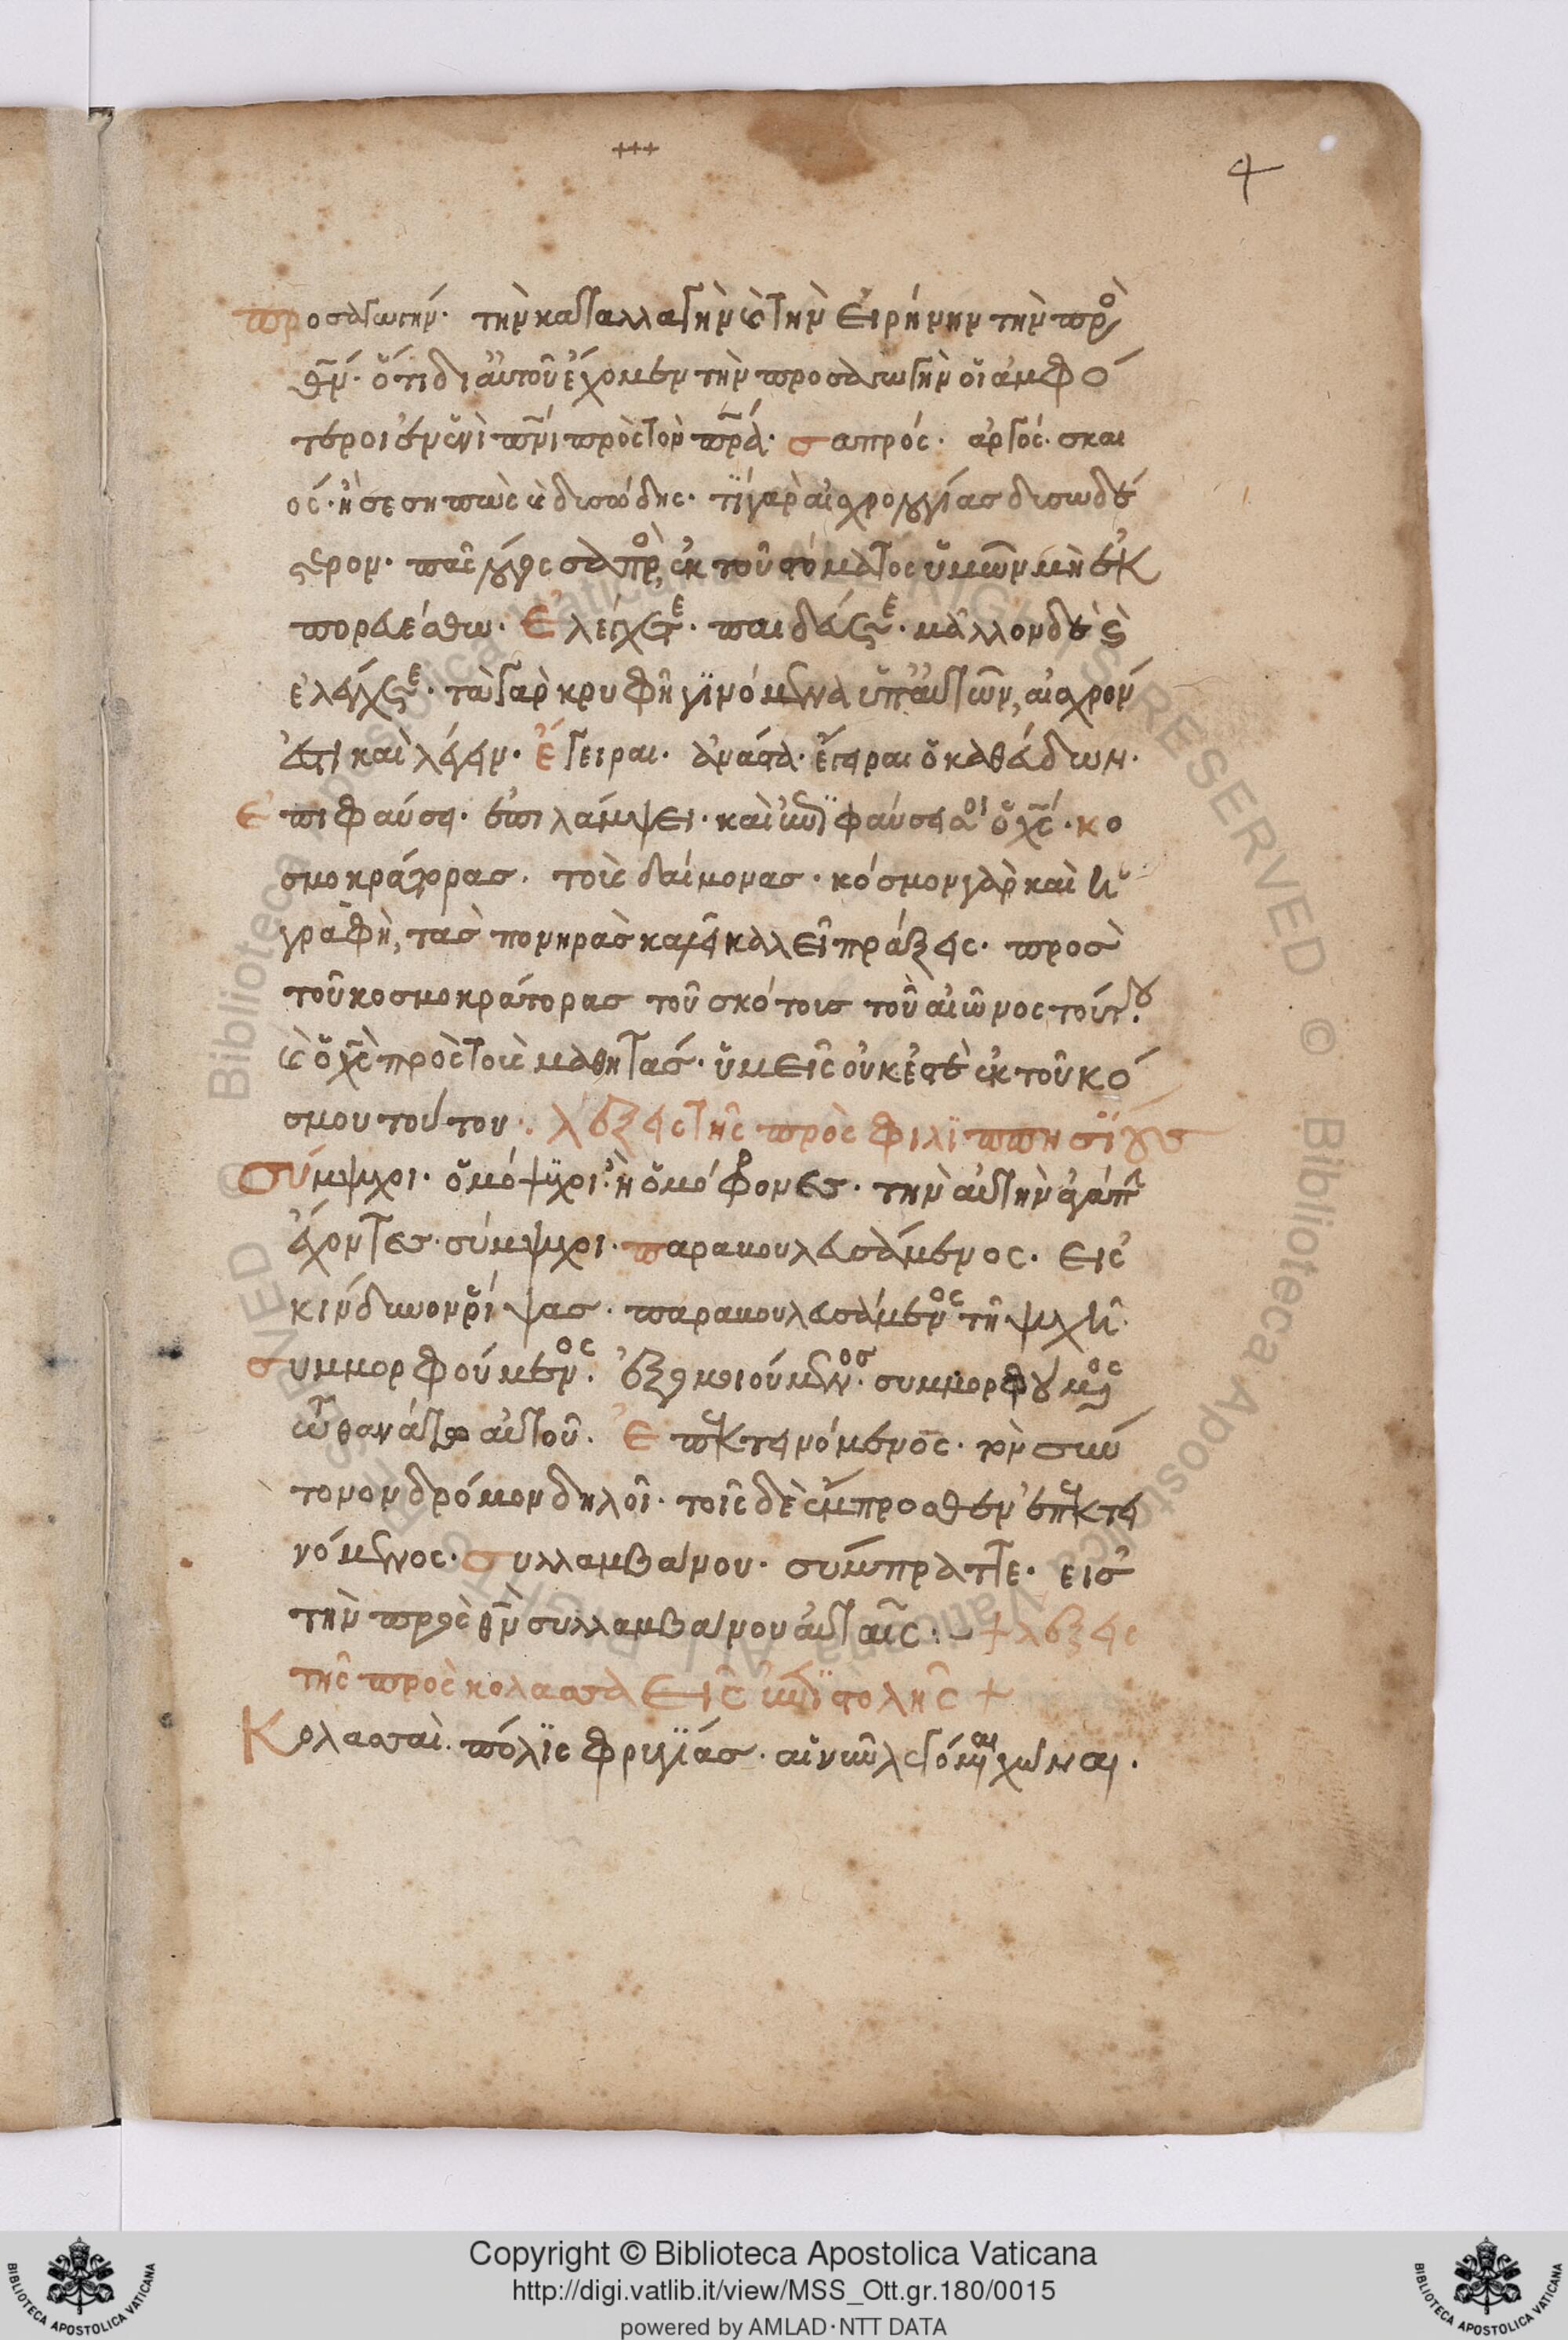 +++
4
προσαγωγήν· τὴν καταλλαγὴν καὶ τὴν εἰρήνην τὴν πρὸ
θν· ὅτι δι αὐτοῦ ἔχομεν τὴν προσαγωγὴν οἱ ἀμφό
τεροι ἐν ἑνὶ πνι πρὸς τὸν πρα· σαπρός· ἀργός· σκαι
ός· ἢ σεσηπὼς καὶ δυσώδης· τί γὰρ αἰσχρολογίας δυσωδέ
στερον· πᾶς λόγος σαπρὸ, ἐκ τοῦ στόματος ὑμῶν μὴ ἐκ
πορευέσθω· Ἐλέγχετε· παιδεύετε· μᾶλλον δὲ καὶ
ἐλέγχετε· τὰ γὰρ κρυφῇ γινόμενα ὑπ αὐτῶν, αἰσχρόν
ἐστι καὶ λέγειν· ἔγειραι· ἀνάστα· ἔγειραι ὁ καθεύδων·
Ἐπιφαύσει· ἐπιλάμψει· καὶ ἐπιφαύσει σοι ὁ χς· κο
σμοκράτορας· τοὺς δαίμονας· κόσμον γὰρ καὶ ἡ
γραφὴ, τὰς πονηρὰς καλεῖ πράξεις· πρὸς
τοὺ κοσμοκράτορας τοῦ σκότους τοῦ αἰῶνος τούτου·
καὶ ὁ χς πρὸς τοὺς μαθητάς· ὑμεῖς οὐκ ἐστὲ ἐκ τοῦ κό
σμου τούτου· λέξεις τῆς πρὸς φιλιππησίους
Σύμψυχοι· ὁμόψυχοι· ἢ ὁμόφρονες· τὴν αὐτὴν ἀγάπη
ἔχοντες· σύμψυχοι· παραβουλευσάμενος· εἰς
κίνδυνον ῥίψας· παραβουλευσάμενος τῇ ψυχῇ·
συμμορφούμενος· ἐξομοιούμενος· συμμορφούμενος
τῷ θανάτῳ αὐτοῦ· Ἐπεκτεινόμενος· τὸν σύν
τονον δρόμον δηλοῖ· τοῖς δὲ ἔμπροσθεν ἐπεκτει
νόμενος· συλλαμβάνου· σύμπραττε· εἰς
τὴν πρὸς θν συλλαμβάνου αὐταῖς· + λέξεις
τῆς πρὸς κολασσαεῖς ἐπιστολῆς +
Κολασσαί· πόλις φρυγίας· αἱ νῦν λεγόμεναι χῶναι·
Copyright © Biblioteca Apostolica Vaticana
http://digi.vatlib.it/view/MSS_Ott.gr.180/0015
powered by AMLAD·NTT DATA